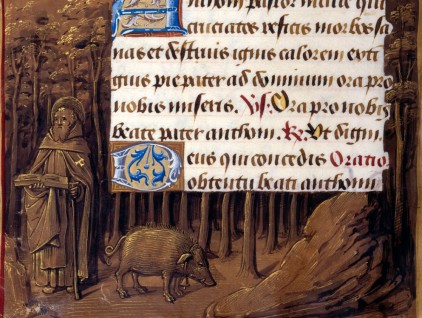 Anthoni pastor inclite qui
cruciatos reficis morbos sa
nas et destruis ignis calorem exti
guis pie pater ad dominum ora pro
nobis miseris. Vs. Ora pro nobis
beate pater anthoni. Rx. Ut digni.
Deus qui concedis Oratio
obtentu beati anthonii